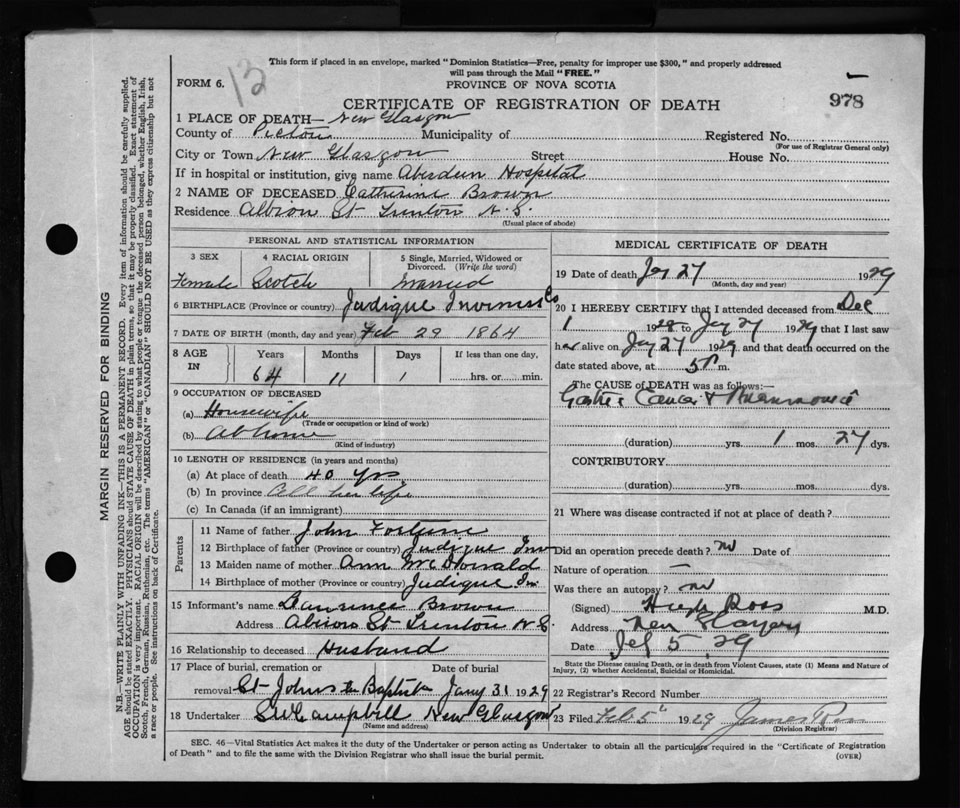 This form if placed in an envelope, marked "Dominion Statistics—Free, penalty for improper use $300," and properly addressed
will pass through the Mail "FREE."
FORM 6. 13
PROVINCE OF NOVA SCOTIA
CERTIFICATE OF REGISTRATION OF DEATH
978
1 PLACE OF DEATH— New Glasgow
County of Pictou Municipality of Registered No.
(For use of Registrar General only)
City or Town New Glasgow Street House No.
If in hospital or institution, give name Aberdeen Hospital
2 NAME OF DECEASED Catherine Brown
Residence Albion St Trenton N.S.
(Usual place of abode)
PERSONAL AND STATISTICAL INFORMATION
3 SEX 4 RACIAL ORIGIN 5 Single, Married, Widowed or
Divorced. (Write the word)
Female Scotch Married
6 BIRTHPLACE (Province or country) Judique Inverness Co
7 DATE OF BIRTH (month, day and year) Feb 29 1864
8 AGE IN Years Months Days If less than one day,
64 11 1 hrs. or min.
9 OCCUPATION OF DECEASED
(a) Housewife
(Trade or occupation or kind of work)
(b) At home
(Kind of industry)
10 LENGTH OF RESIDENCE (in years and months)
(a) At place of death 40 yrs
(b) In province all her life
(c) In Canada (if an immigrant)
Parents
11 Name of father John
12 Birthplace of father (Province or country) Judique Inv
13 Maiden name of mother Ann McDonald
14 Birthplace of mother (Province or country) Judique In
15 Informant's name Lawrence Brown
Address Albion St Trenton N.S.
16 Relationship to deceased Husband
17 Place of burial, cremation or Date of burial
removal St Johns the Baptist Jany 31 1929
18 Undertaker Campbell New Glasgow
(Name and address)
MEDICAL CERTIFICATE OF DEATH
19 Date of death Jay 27 1929
(Month, day and year)
20 I HEREBY CERTIFY that I attended deceased from Dec
1 1928 to Jay 27 1929 that I last saw
her alive on Jay 27 1929 and that death occurred on the
date stated above, at 5 P m.
The CAUSE of DEATH was as follows:—
Gastric Cancer &
(duration) yrs. 1 mos. 27 dys.
CONTRIBUTORY
(duration) yrs. mos. dys.
21 Where was disease contracted if not at place of death?
Did an operation precede death? no Date of
Nature of operation —
Was there an autopsy? no
(Signed) Hugh Ross M.D.
Address New Glasgow
Date Feb 5 29
State the Disease causing Death, or in death from Violent Causes, state (1) Means and Nature of
Injury, (2) whether Accidental, Suicidal or Homicidal.
22 Registrar's Record Number
23 Filed Feb 5 1929 James
(Division Registrar)
SEC. 46—Vital Statistics Act makes it the duty of the Undertaker or person acting as Undertaker to obtain all the particulars required in the "Certificate of Registration
of Death" and to file the same with the Division Registrar who shall issue the burial permit.
(OVER)
MARGIN RESERVED FOR BINDING
N.B.—WRITE PLAINLY WITH UNFADING INK—THIS IS A PERMANENT RECORD. Every item of information should be carefully supplied.
AGE should be stated EXACTLY. PHYSICIANS should STATE CAUSE OF DEATH in plain terms, so that it may be properly classified. Exact statement of
OCCUPATION is very important. RACIAL ORIGIN will be described by stating to what people or tongue the deceased person belonged, whether English, Irish,
Scotch, French, German, Russian, Ruthenian, etc. The terms "AMERICAN" or "CANADIAN" SHOULD NOT BE USED as they express citizenship but not
a race or people. See instructions on back of Certificate.